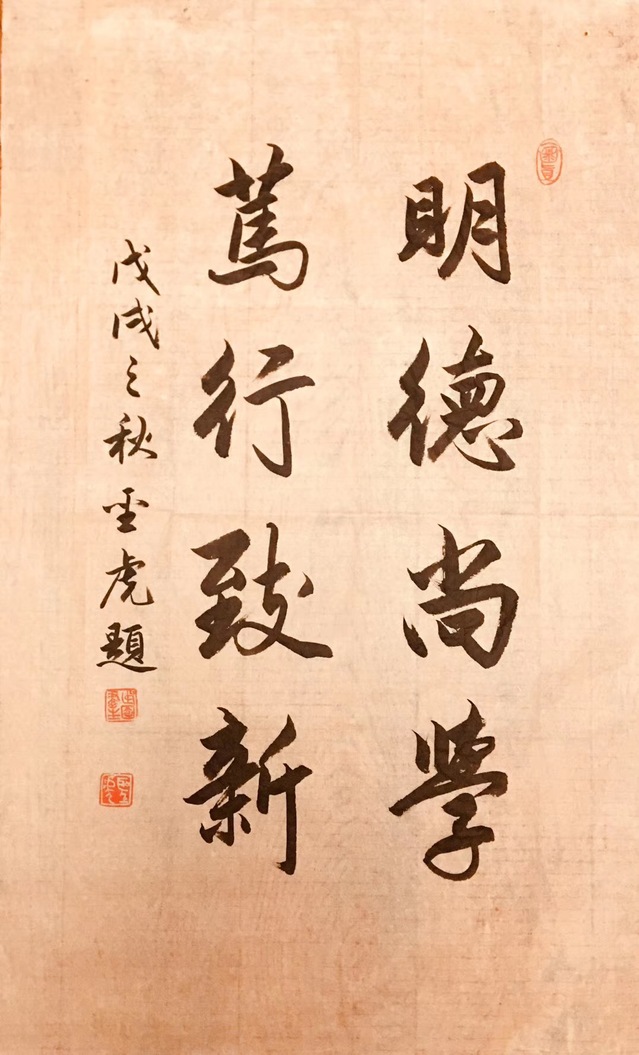 明德尚學
篤行致新
戊戌之秋 虎題